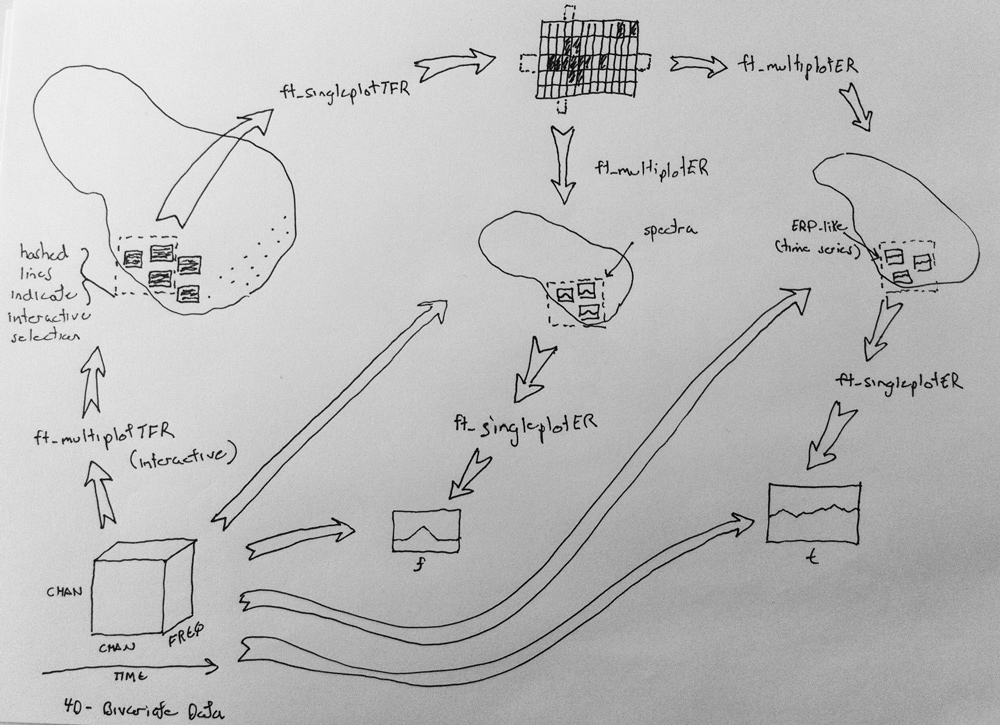 ft_singleplotTFR
ft_multiplotER
ft_multiplotER
spectra
ERP-like
(time series)
hashed
lines
indicate
interactive
selection
ft_multiplotTFR
(interactive)
ft_singleplotER
ft_singleplotER
f
t
CHAN
CHAN
FREQ
TIME
4D - Bivariate Data